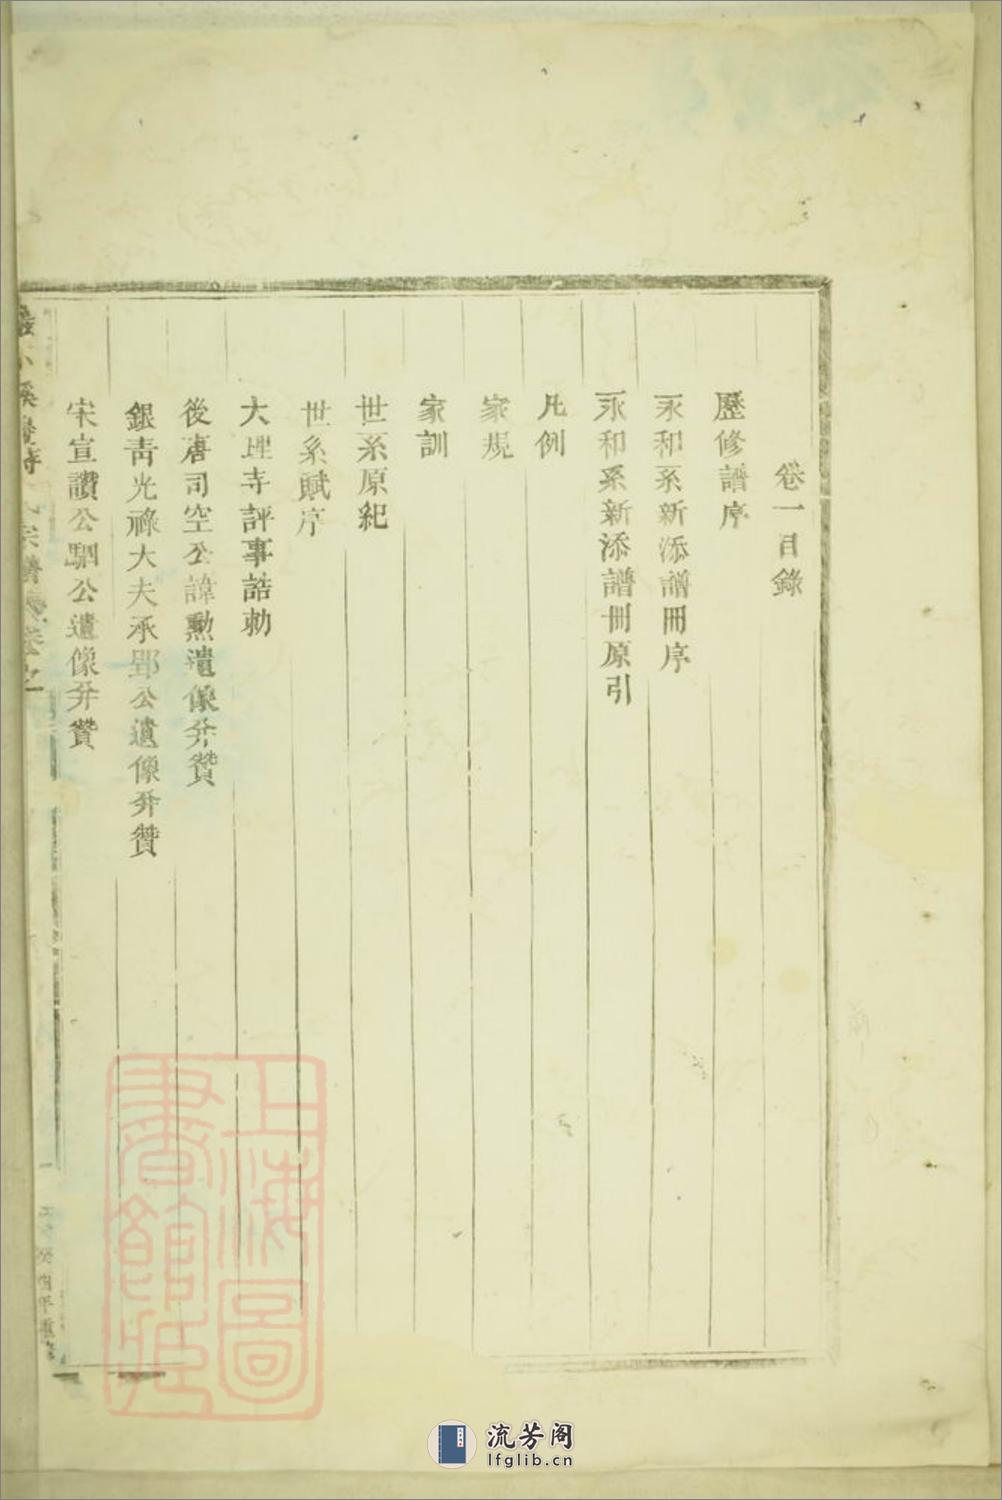 卷一目錄
歷修譜序
永和系新添譜冊序
永和系新添譜冊原引
凡例
家規
家訓
世系原紀
世系賦序
大理寺評事誥勅
後唐司空公諱勲遺像并贊
銀青光祿大夫承郢公遺像并贊
宋宣讚公駟公遺像并贊
宗譜
癸酉年重修
上海圖書館藏
流芳阁
lfglib.cn